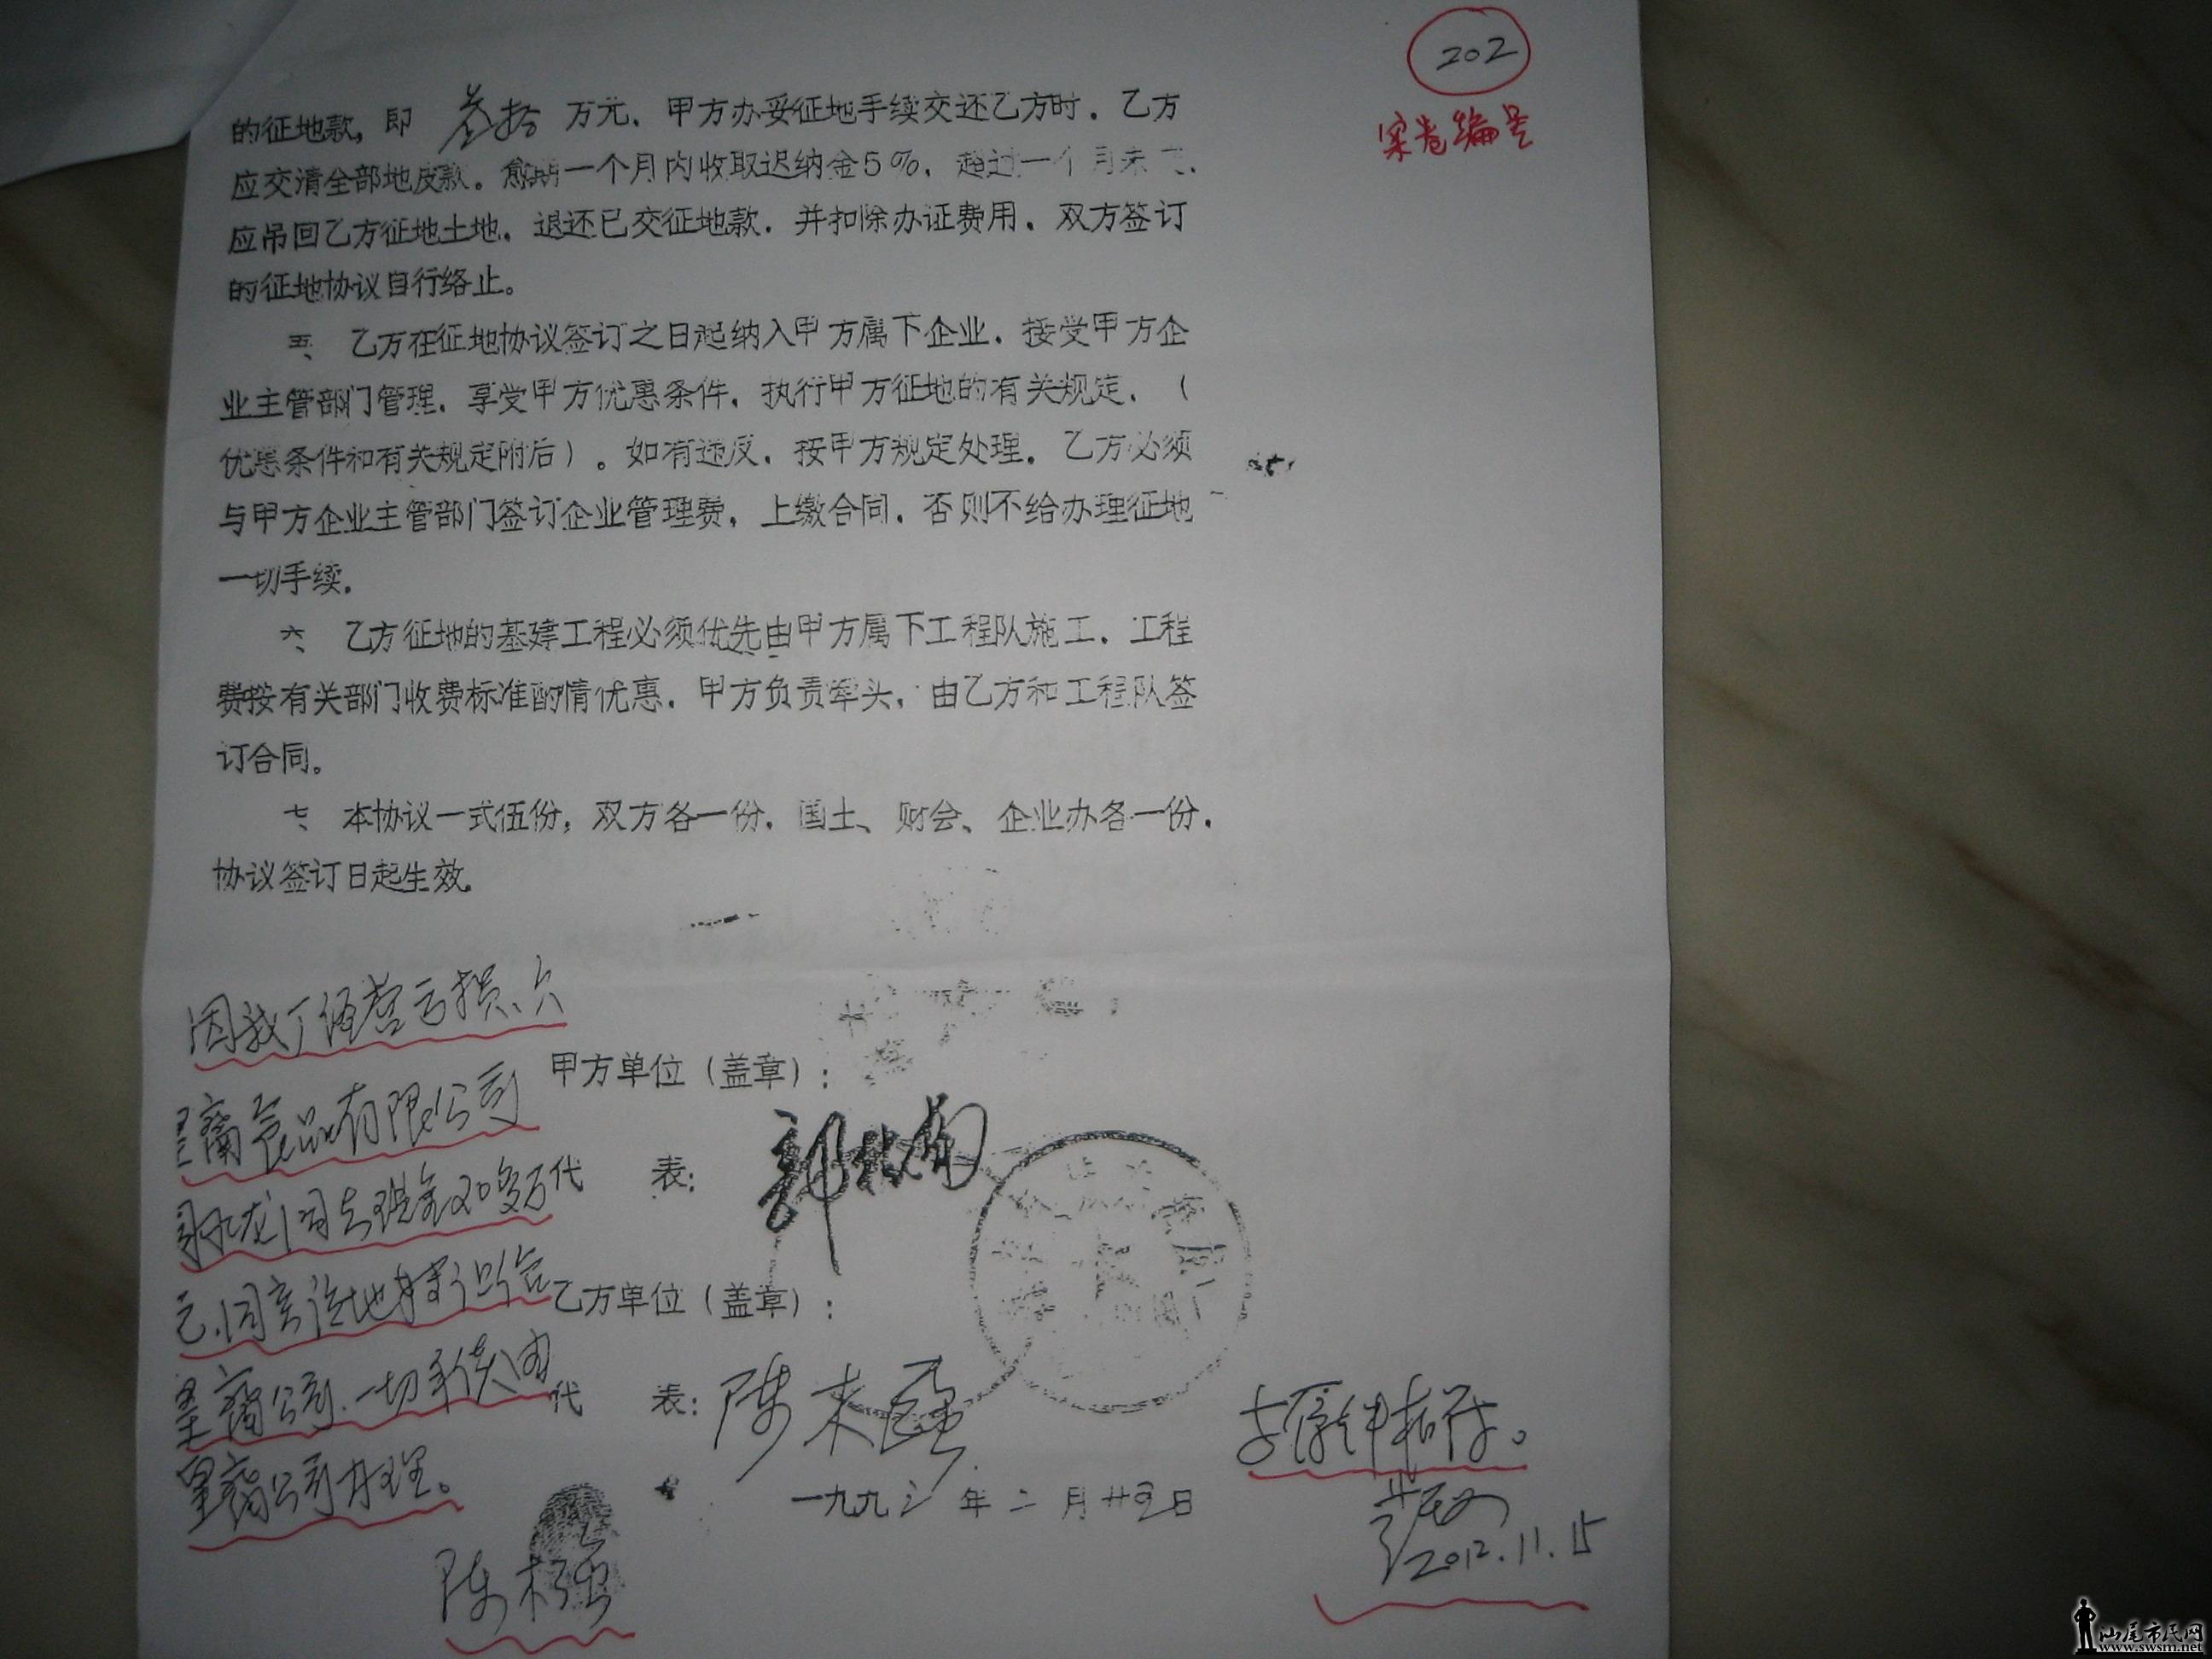 202
案卷编号
的征地款，即 叁拾 万元、甲方办妥征地手续交还乙方时．乙方
应交清全部地皮款。愈期一个月内收取迟纳金5%．超过一个月未
应吊回乙方征地土地．退还已交征地款．并扣除办证费用．双方签订
的征地协议自行络止。
五、乙方在征地协议签订之日起纳入甲方属下企业．接受甲方企
业主管部门管理．享受甲方优惠条件．执行甲方征地的有关规定．（
优惠条件和有关规定附后）。如有违反．按甲方规定处理．乙方必须
与甲方企业主管部门签订企业管理费．上缴合同．否则不给办理征地
一切手续．
六、乙方征地的基建工程必须优先由甲方属下工程队施工．工程
费按有关部门收费标准酌情优惠．甲方负责牵头．由乙方和工程队签
订合同。
七、本协议一式伍份，双方各一份．国土、财会、企业办各一份．
协议签订日起生效．
因我厂经营亏损、欠
甲方单位（盖章）：
食品有限公司
代 表：
乙方单位（盖章）：
公司．一切手续由
代 表：陈木强
公司办理。
一九九三年二月廿五日
陈木强
2012.11.15
汕尾市民网
www.swsm.net